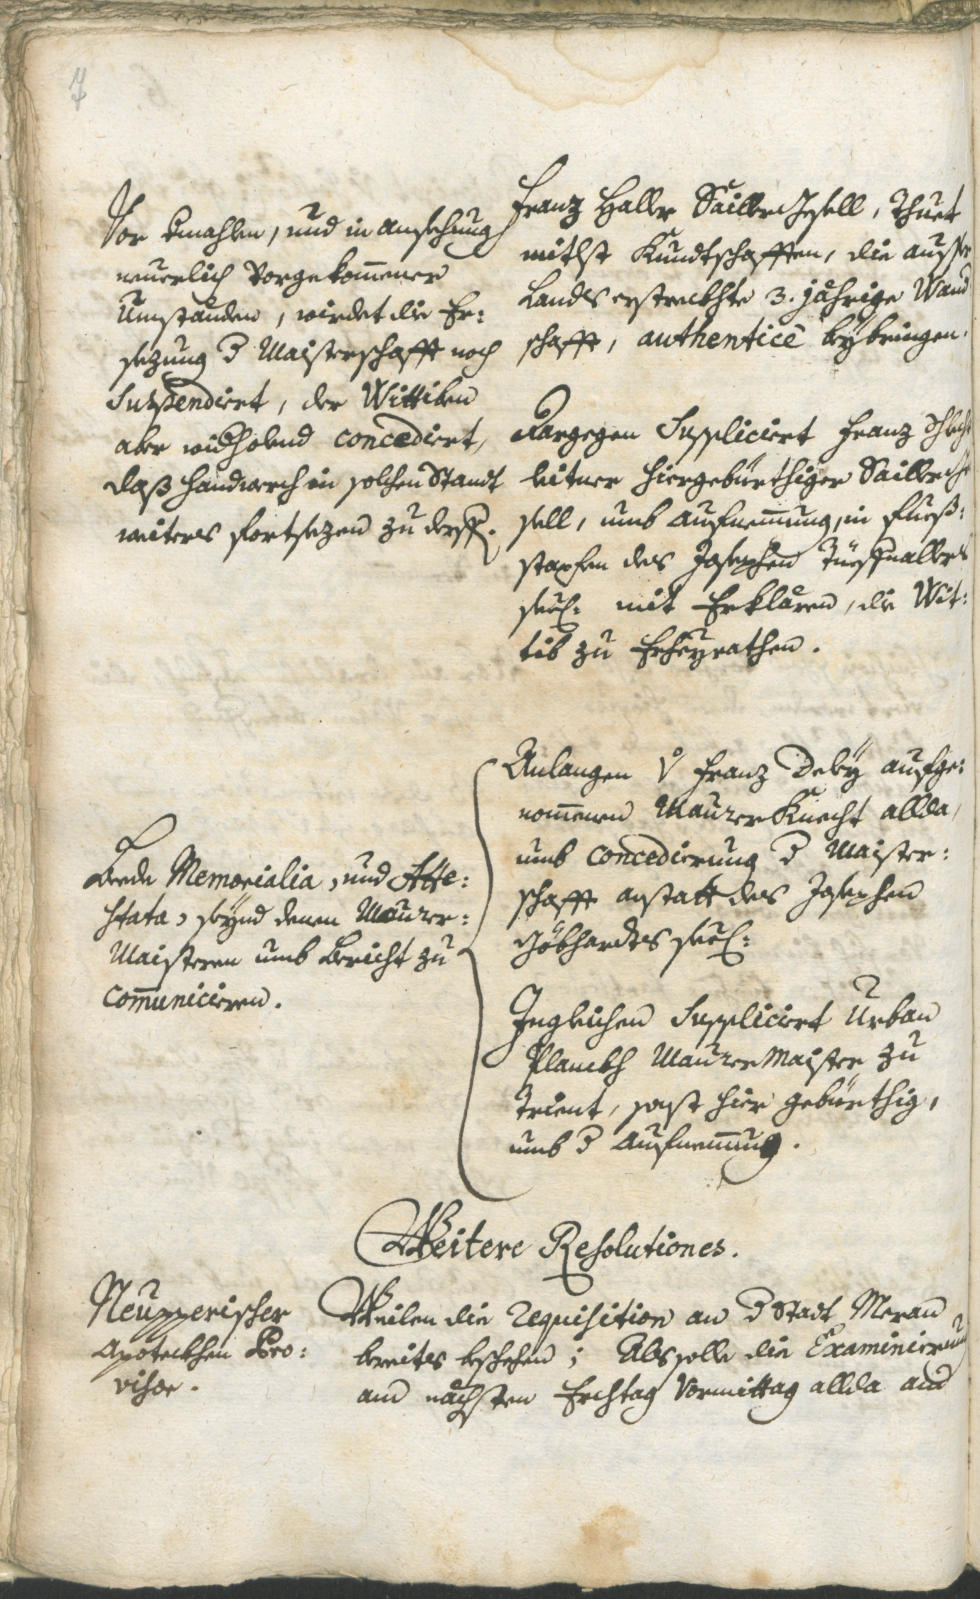 7
Vor Emahlen, und in ansehung
neuerlich Vorgekom̄ener
Umständen, wirdet die Er:
sezung d Maisterschafft noch
Suspendiert, der Wittiben
aber widholend concediert,
daß handwerch in solchen Standt
weiters fortsezen zu derffen.
Franz Haller Sailler Gsell, thuet
mitlst Kundtschafften, die ausser
Lands erstreckhte 3. jährige Wand
schafft, authenticè beybringen.
Dargegen Suppliciert Franz
leitner hiergebürthiger Sailler Ge
sell, umb aufnem̄ung, in Fueß:
stapfen des Josephen
seel: mit Erklären, die Wit:
tib zu Erheyrathen.
Bede Memorialia, und Atte:
stata, seynd denen Maurer:
Maisteren umb Bericht zu
com̄unicieren.
Anlangen V Franz Deby aufge:
nom̄enen Maurer Knecht allda,
umb concedierung d Maister:
schafft anstatt des Josephen
Göbhardts seel:
Ingleichen Suppliciert Urban
Planckh Maurer Maister zu
Trient, sonst hier gebürthig,
umb d aufnem̄ung.
Weitere Resolutiones.
Neupperischer
Apoteckhen Pro:
visor.
Weilen die requisition an d Stadt Meran
bereits beschehen; Als solle die Examinierung
am nächsten Erchtag Vormittag allda am